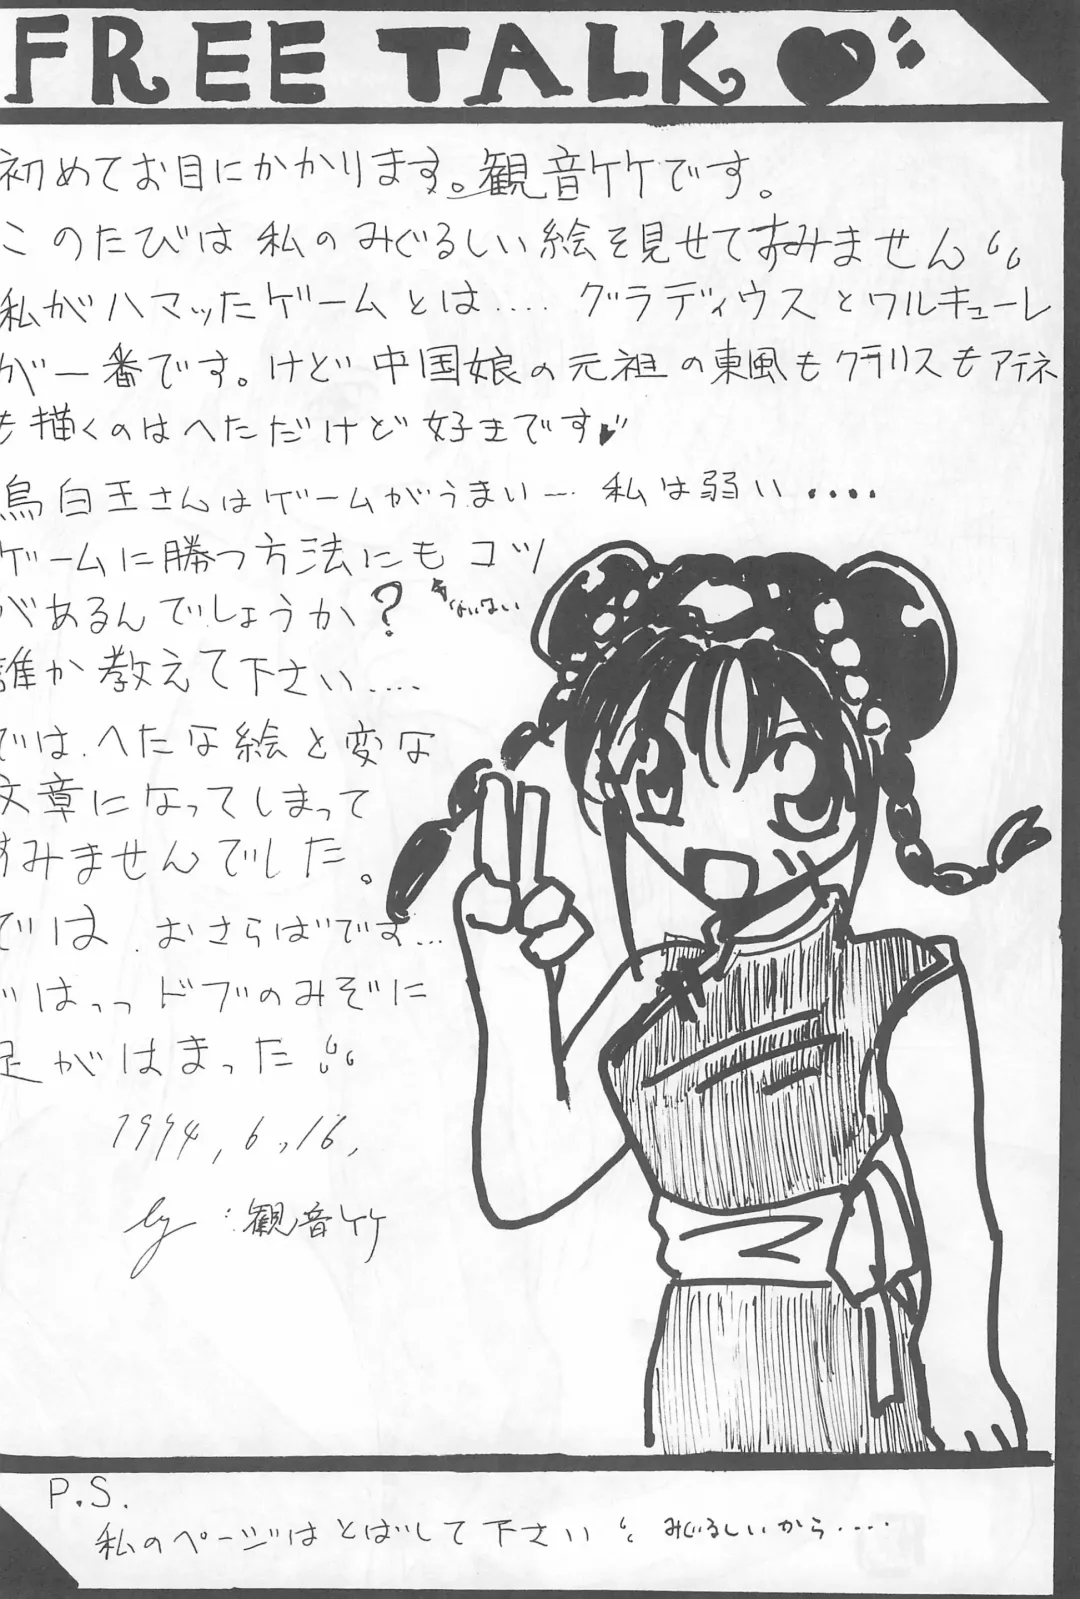 FREE TALK
初めてお目にかかります。観音竹です。
このたびは私のみぐるしい絵を見せてすみません
私がハマッたゲームとは.... グラディウスとワルキューレ
が一番です。けど中国娘の元祖の東風もクラリスもアテネ
も描くのはへただけど好きです
烏白王さんはゲームがうまい… 私は弱い....
ゲームに勝つ方法にもコツ
があるんでしょうか?
ないない
誰か教えて下さい....
では、へたな絵と変な
文章になってしまって
すみませんでした。
では、おさらばです...
はっっドブのみぞに
足がはまった
1994, 6, 16,
by:観音竹
P.S.
私のページはとばして下さい みぐるしいから....